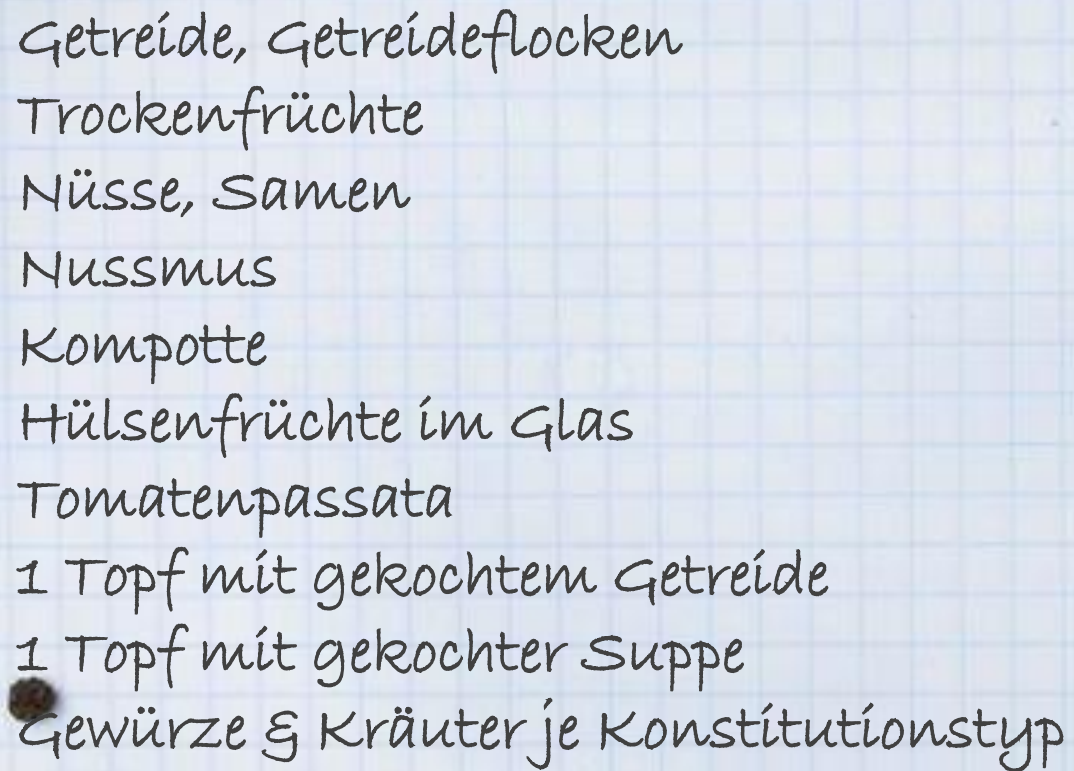 Getreide, Getreideflocken
Trockenfrüchte
Nüsse, Samen
Nussmus
Kompotte
Hülsenfrüchte im Glas
Tomatenpassata
1 Topf mit gekochtem Getreide
1 Topf mit gekochter Suppe
Gewürze & Kräuter je Konstitutionstyp